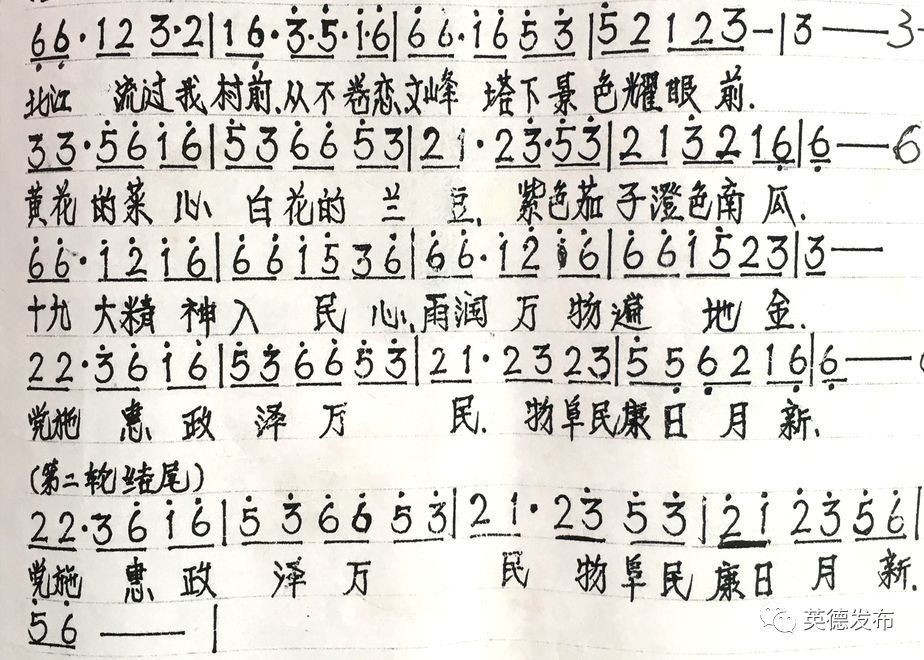 66·12 3·2|16·3·5·16|66·1653|52 123-|3——3-
北江 流过我村前,从不卷恋文峰 塔下景色耀眼前.
33·5616|536653|21·23·53|21 32 16|6——6
黄花的菜心 白花的兰豆, 紫色茄子澄色南瓜.
66·1216|661536|66·1216|661523|3——
十九大精神入民心,雨润万物遍地金.
22·3616|536653|21·2323|556216|6——
党施惠政泽万 民. 物阜民康日月新.
(第二轮结尾)
22·3616|536653|21·2353|21 2356|
党施惠政泽万 民 物阜民康日月新.
56——|
英德发布